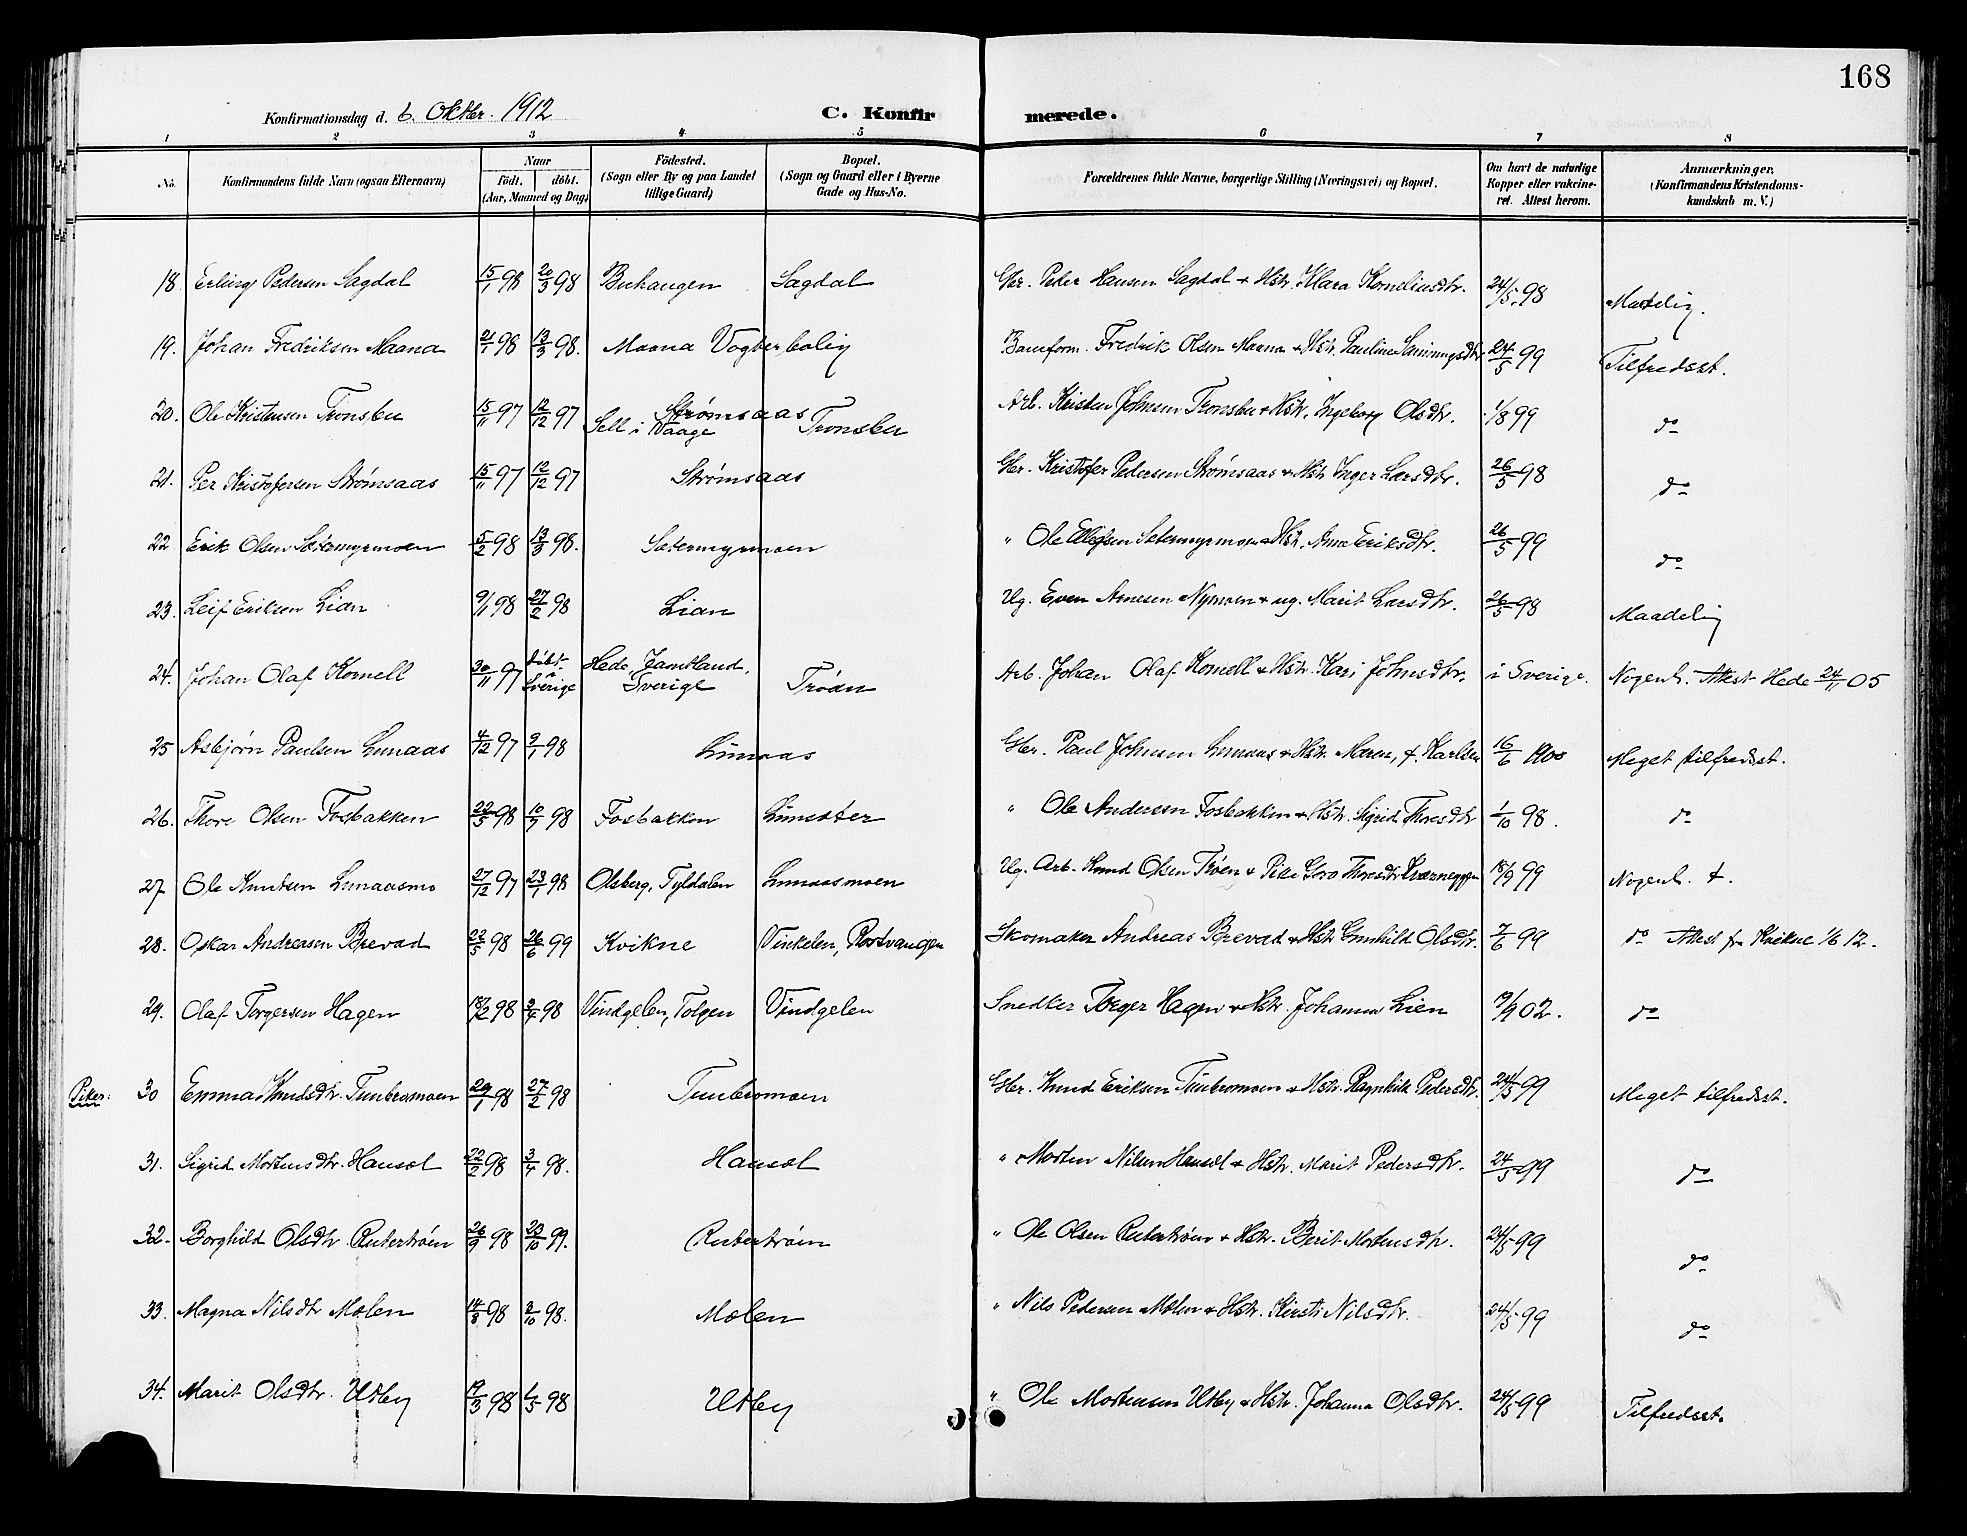 168
Konfirmationsdag d. 6. Oktbr. 1912 C. Konfirmerede.
1 2 3 4 5 6 7 8
No. Konfirmandens fulde Navn (ogsaa Efternavn) Naar født. døbt. (Aar, Maaned og Dag) Fødested. (Sogn eller By og paa Landet tillige Gaard) Bopæl. (Sogn og Gaard eller i Byerne Gade og Hus-No. Forældrenes fulde Navne, borgerlige Stilling (Næringsvei) og Bopæl. Om havt de naturlige Kopper eller vakcineret. Attest herom. Anmærkninger. (Konfirmandens Kristendomskundskab m. V.)
18 Erling Pedersen Sagdal 15/1 98 20/3 98 Buhaugen Sagdal Gbr. Peder Hansen Sagdal + Hstr. Klara Korneliusdtr. 24/5 98 Maadelig.
19. Johan Fredriksen Maana 21/1 98 13/3 98. Maana Vogterbolig Baneform. Fredrik Olsen Maana + Hstr. Pauline 24/5 99 Tilfredsst.
20. Ole Kristensen Tronsbu 15/11 97 12/12 97 Strømsaas Sell i Vaage Tronsbu Arb. Kristen Johnsen Tronsbu + Hstr. Ingeborg Olsdtr. 1/8 99 do
21. Per Kristofersen Strømsaas 15/11 97 12/12 97 Strømsaas Gbr. Kristofer Pedersen Strømsaas + Hstr Inger Larsdtr. 26/5 98 do
22 Erik Olsen Sætermyrmoen 5/2 98 13/3 98. Sætermyrmoen " Ole Ellefsen Sætermyrmoen + Hstr. Anne Eriksdtr. 26/5 99 do
23. Leif Eriksen Lian 9/1 98 27/2 98 Lian Ug. Even Arnesen Nymoen + ug. Marit Larsdtr. 26/5 98 Maadelig
24. Johan Olaf Kornell 30/11 97 døbt i Sverige Hede, Jamtland, Sverige Trøan Arb. Johan Olaf Kornell + Hstr. Kari Johnsdtr. i Sverige. Nogenl. Attest Hede 24/11 05
25 Asbjørn Paulsen Lunaas 4/12 97 9/1 98 Lunaas Gbr. Paul Johnsen Lunaas + Hstr. Maren, f. Karlsen 16/6 1900 Meget tilfredsst.
26. Thore Olsen Fosbakken 22/5 98 10/7 98 Fosbakken Lunsæter " Ole Andersen Fosbakken + Hstr. Sigrid Thoresdtr 1/10 98. do
27. Ole Knutsen Lunaasmo 27/12 97 23/1 98 Olsberg, Tyldalen Lunaasmoen Ug. Arb. Knud Olsen Trøen + Pike Goro Thoresdtr Kværneggen 18/9 99 Nogenl. +.
28. Oskar Andreasen Brevad 22/5 98 26/6 99 Kvikne Vinkelen, Røstvangen Skomaker Andreas Brevad + Hstr Gunhild Olsdtr. 7/6 99 do Attest fra Kvikne 1/6 12.
29. Olaf Torgersen Hagen 18/2 98 3/4 98 Vindgelen, Tolgen Vindgelen Snedker Torger Hagen + Hstr. Johanna Lien 19/9 02. do
Piker: 30 Emma Knudsdtr. Tunbromoen 29/1 98 27/2 98 Tunbromoen Gbr. Knud Eriksen Tunbromoen + Hstr. Ragnhild Pedersdtr. 24/5 99 Meget tilfredsst.
31. Sigrid Mortensdtr. Hansæl 22/2 98 3/4 98. Hansæl " Morten Nilsen Hansæl + Hstr. Marit Pedersdtr. 24/5 99 do
32. Borghild Olsdtr. Rutertrøen 26/9 98 23/10 99. Rutertrøen " Ole Olsen Rutertrøen + Hstr. Berit Mortensdtr. 24/5 99 do
33. Magna Nilsdtr Mælen 14/8 98 2/10 98. Mælen " Nils Pedersen Mælen + Hstr. Kirsti Nilsdtr. 24/5 99 do
34. Marit Olsdtr. Utby 19/3 98 1/5 98 Utby " Ole Mortensen Utby + Hstr. Johanna Olsdtr. 24/5 99 Tilfredsst.